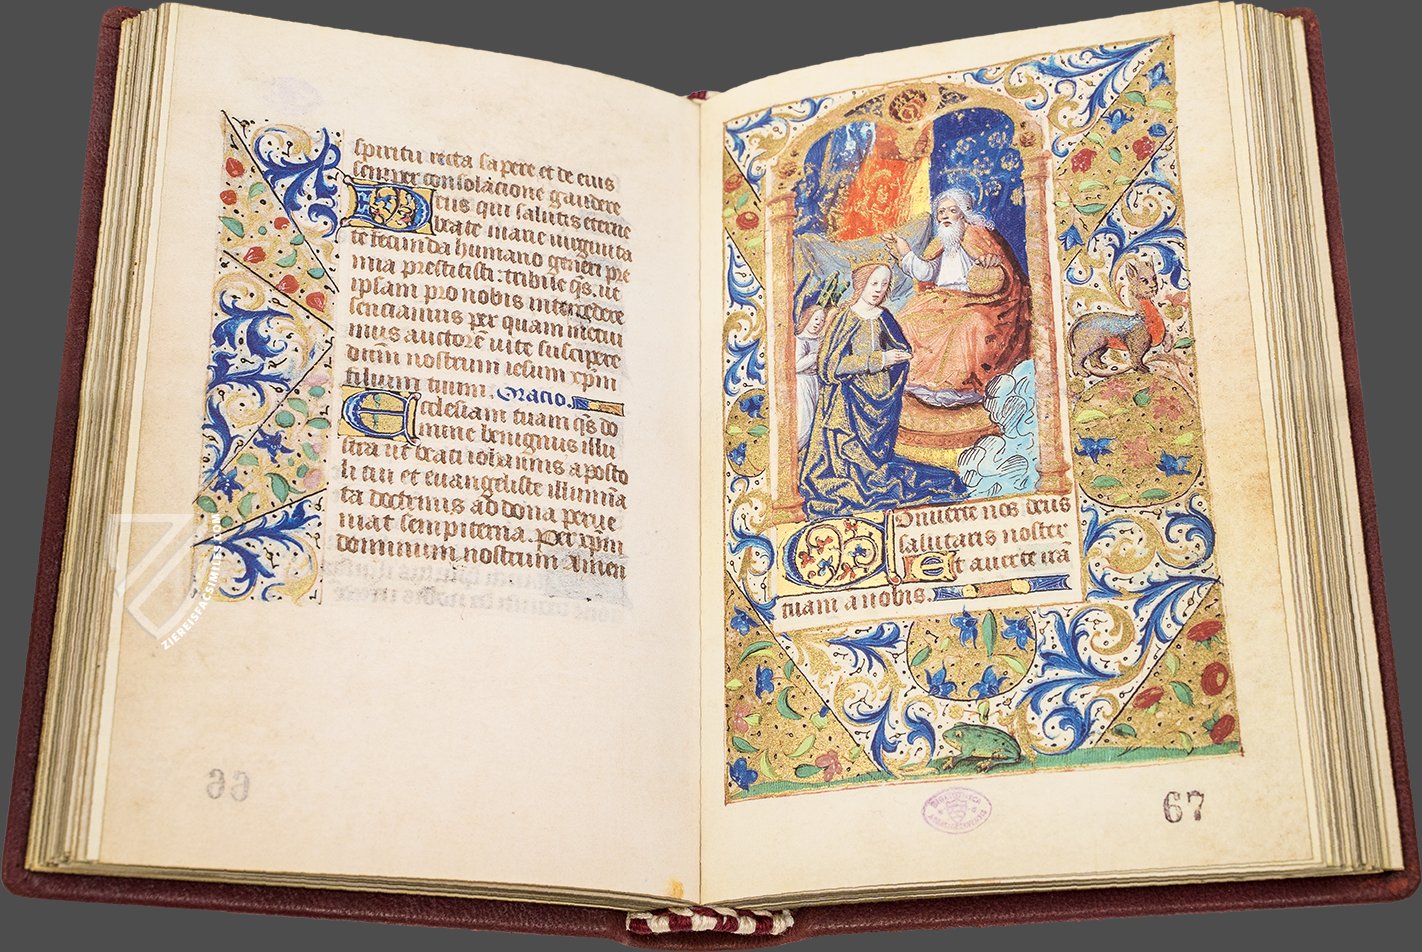 spiritu recta sapere et de eius
semper consolacione gaudere
Deus qui salutis eterne
beate marie uirginita
te fecunda humano generi pre
mia prestitisti: tribue q̄s. ut
ipsam pro nobis intercedere
senciamus per quam meruī
mus auctorē uite suscipere
dn̄m nostrum iesum xp̄m
filium tuum. Oracio.
Ecclesiam tuam q̄s do
mine benignus illu
stra ut beati iohannis aposto
li tui et euangeliste illumīa
ta doctrinis ad dona perue
niat sempiterna. Per xp̄m
dominum nostrum Amen
66
ZIEREISFACSIMILES.COM
Conuerte nos deus
salutaris noster
Et auerte irā
tuam a nobis.
67